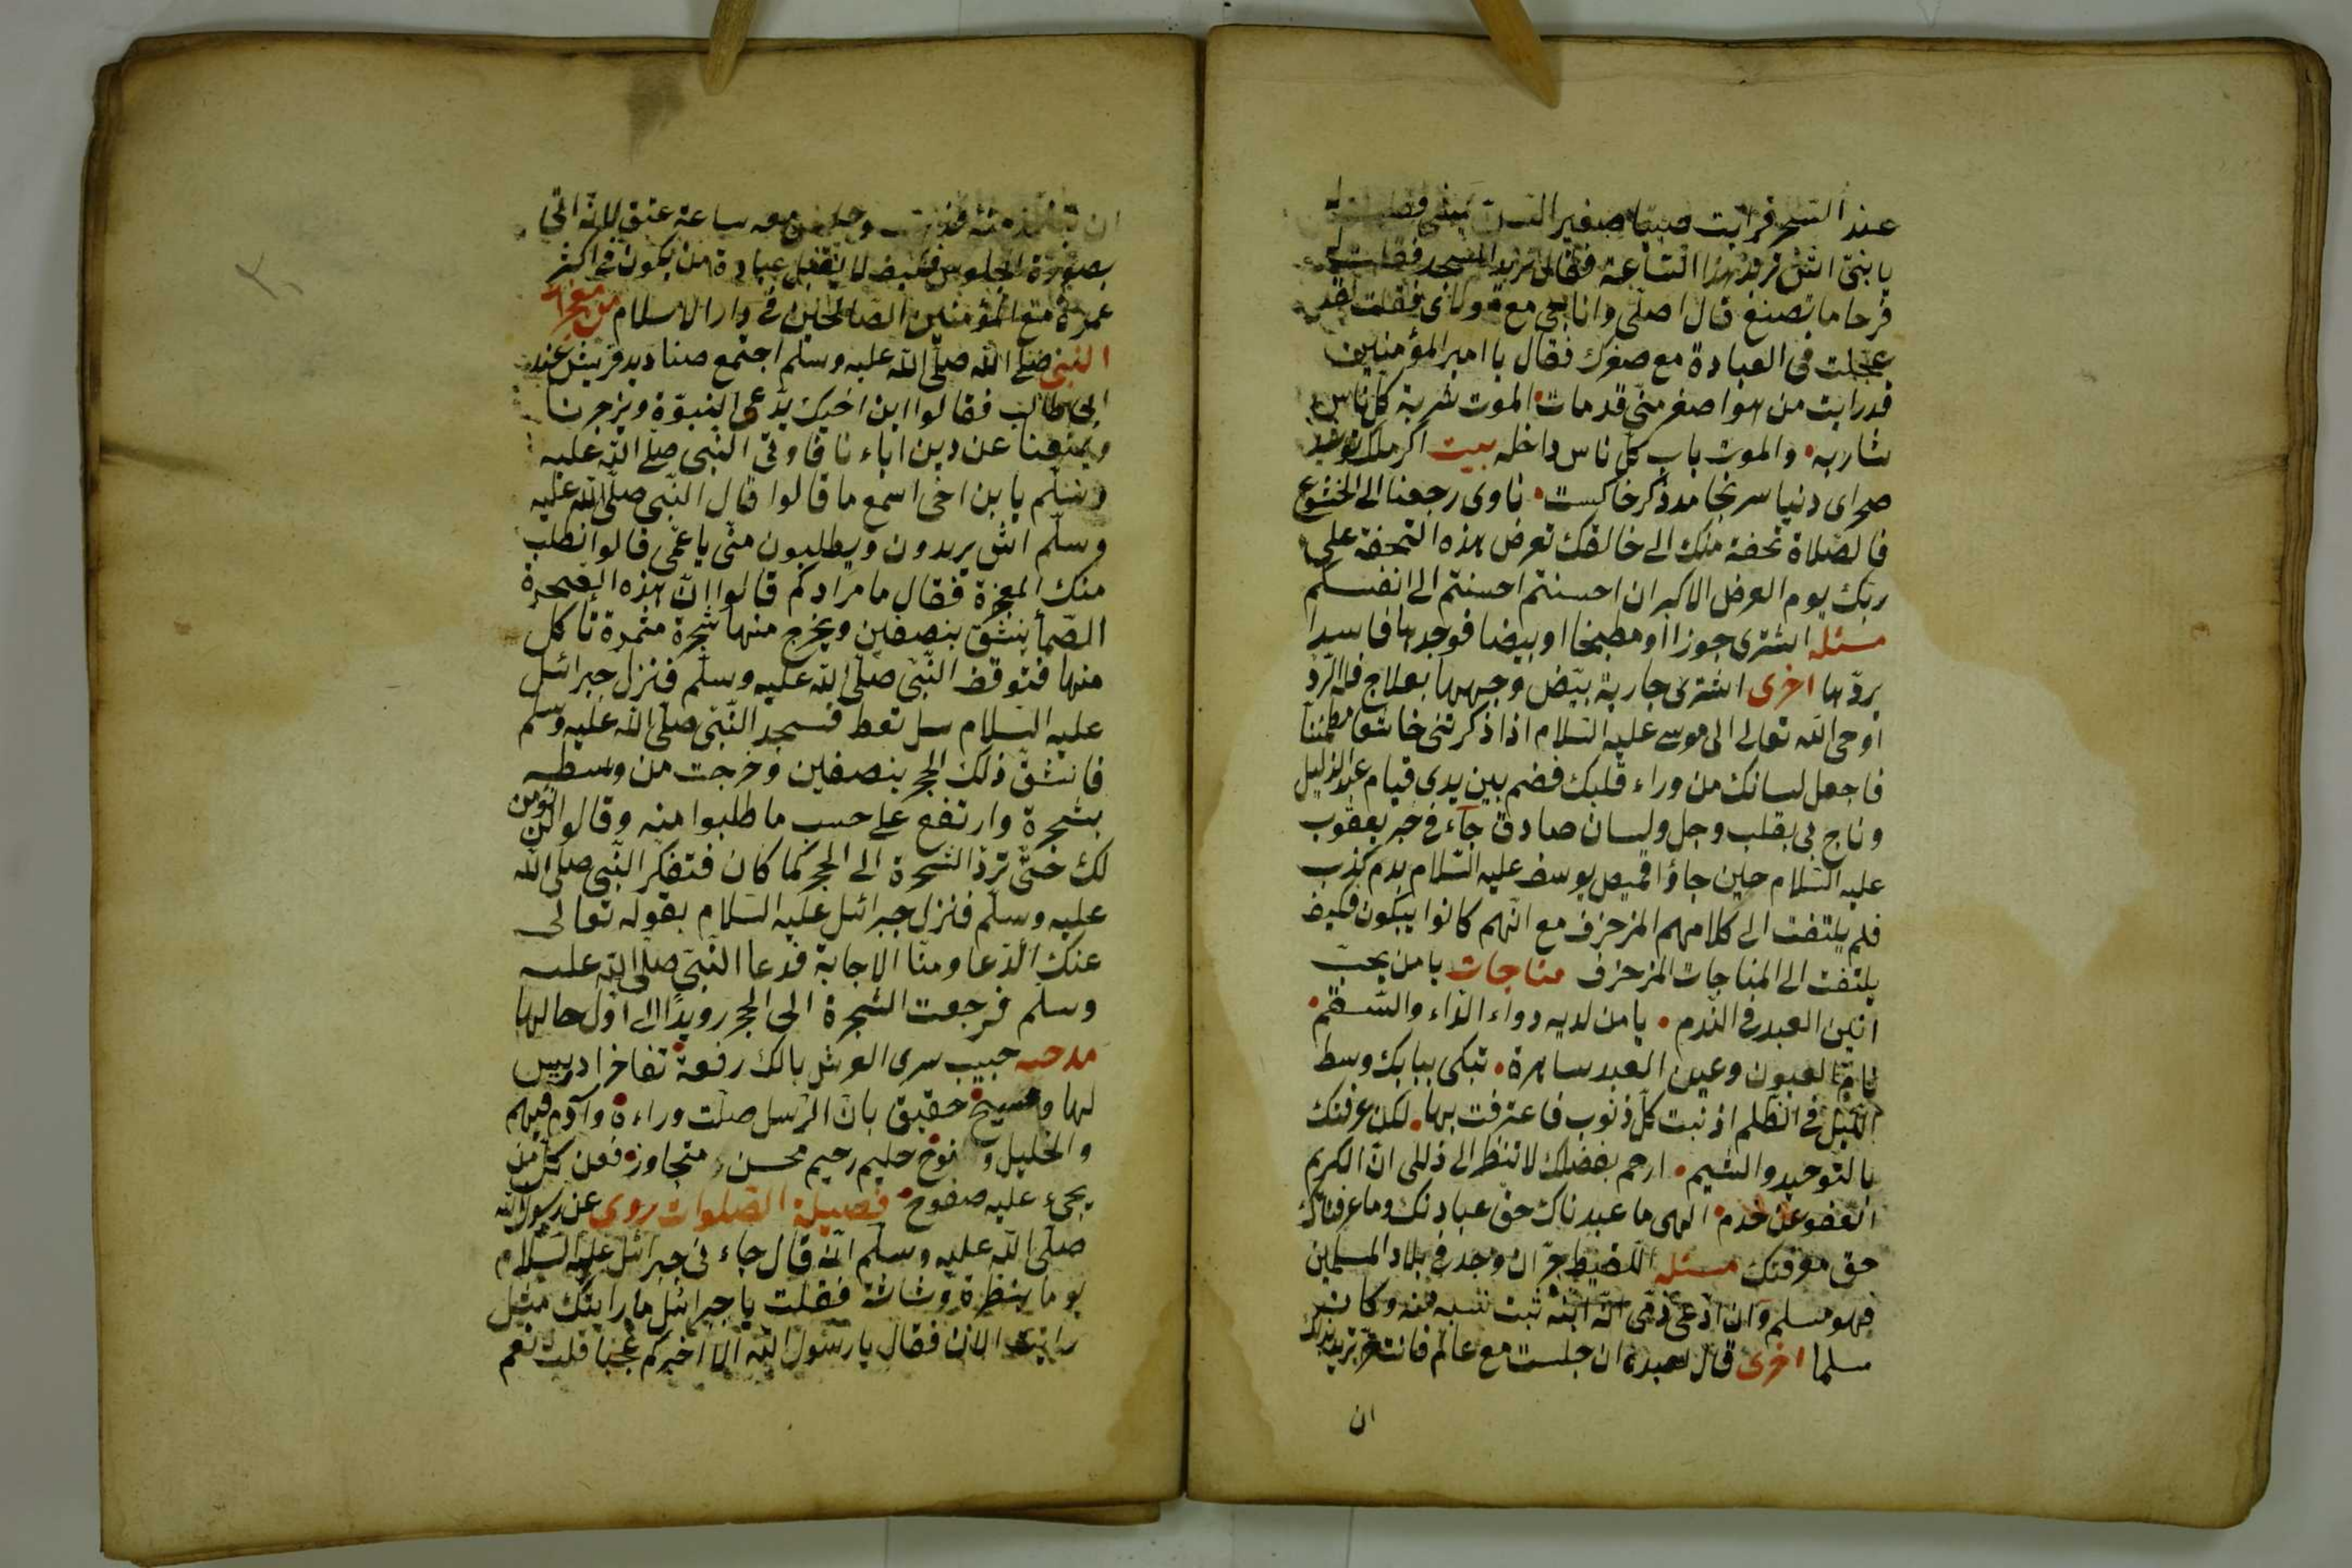 عند السحر فرايت صبيا صغير السن يمشى فقلت له
يا بنىّ اىش تريد هذا الساعة فقال نريد المسجد فقلت له
فرحا ما تصنع قال اصلّى وانا جى مع مولاى فقلت لقد
عجلت فى العبادة مع صغرك فقال يا امير المؤمنين
قد رايت من هوا صغر منّى قد مات الموت شربة كل ناس
شاربه والموت باب كل ناس داخله بيت اكر ملك
صحراى دنيا سرنجامد ذكر خاكيست ناوى رجعنا الى الخشوع
فالصّلاة تحفة منك الى خالقك تعرض هذه التحفة على
ربك يوم العرض الاكبر ان احسنتم احسنتم الى انفسكم
مسئله اشترى جوزا او مطبخا او بيضا فوجدها فاسدا
يردّها اخرى اشترى جارية بيّض وجهها بعلاج فله الردّ
اوحى الله تعالى الى موسى عليه السّلام اذا ذكرتنى خاشعا مطمئنا
فاجعل لسانك من وراء قلبك فضم بين يدى قيام عبد الذليل
وناج بى بقلب وجل ولسان صادق جآء فى خبر يعقوب
عليه السّلام حين جاؤا قميص يوسف عليه السّلام بدم كذب
فلم يلتفت الى كلامهم المزخرف مع انّهم كانوا يبكون فكيف
يلتفت الى المناجات المزخرف مناجات يا من يحبّ
انين العبد فى النّدم يا من لديه دواء الدّاء والسّقم
نام العيون وعين العبد ساهرة تبكى ببابك وسط
الليل فى الظلم اذنبت كلّ ذنوب فاعترفت بها لكن عرفتك
بالتوحيد والشيم ارحم بفضلك لا تنظر الى ذللى انّ الكريم
العفو عن خدم الهى ما عبدناك حق عبادتك وما عرفناك
حق معرفتك مسئله اللقيط حرّ ان وجد فى بلاد المسلمين
فهو مسلم وان ادّعى ذمّى انّه ابنه ثبت نسبه منه وكان
مسلما اخرى قال لعبده ان جلست مع عالم فانت حرّ تريد بذلك
ان
ان منه وجلس معه ساعة عتق لانّه اتى
بصورة الجلوس فكيف لا يتقبل عبادة من يكون فى اكثر
عمره مع المؤمنين الصّالحين فى دار الاسلام من معجزات
النبى صلى الله صلّى الله عليه وسلّم اجتمع صناديد قريش عند
ابى طالب فقالوا ابن اخيك يدّعى النبوّة ويزجرنا
ويمنعنا عن دين اباءنا فاوتى النّبى صلّى الله عليه
وسلّم يا بن اخى اسمع ما قالوا قال النّبى صلّى الله عليه
وسلّم اىش يريدون ويطلبون منّى يا عمّى قالوا نطلب
منك المعجزة فقال ما مرادكم قالوا انّ هذه الصخرة
الصّمأ ينشقّ بنصفين ويخرج منها شجرة مثمرة تاكل
منها فتوقف النّبى صلّى الله عليه وسلّم فنزل جبرائيل
عليه السلام سل تعط فسجد النّبى صلّى الله عليه وسلم
فانشقّ ذلك الحجر بنصفين وخرجت من وسطه
بشجرة وارتفع على حسب ما طلبوا منه وقالوا لن نؤمن
لك حتّى تردّ الشجرة الى الحجر كما كان فتفكر النّبى صلّى الله
عليه وسلّم فنزل جبرائيل عليه السّلام بقوله تعالى
عنك الدّعا ومنّا الاجابة فدعا النّبى صلّى الله عليه
وسلم فرجعت الشجرة الى الحجر رويدا الى اول حالها
مدحه حبيب سرى العرش بالك رفعة تفاخر ادريس
لها ومسيح حقيق بانّ الرّسل صلّت وراءه وآدم فيهم
والخليل ونوح حليم رحيم محسن متجاوز فعن كلّ من
يجىء عليه صفوح فضيلة الصّلوات روى عن رسول الله
صلّى الله عليه وسلّم انّه قال جاءنى جبرائيل عليه السّلام
يوما بنظرة وشاشة فقلت يا جبرائيل ما رايتك مثل
رايتك الان فقال يا رسول الله الا اخبركم عجبا قلت نعم